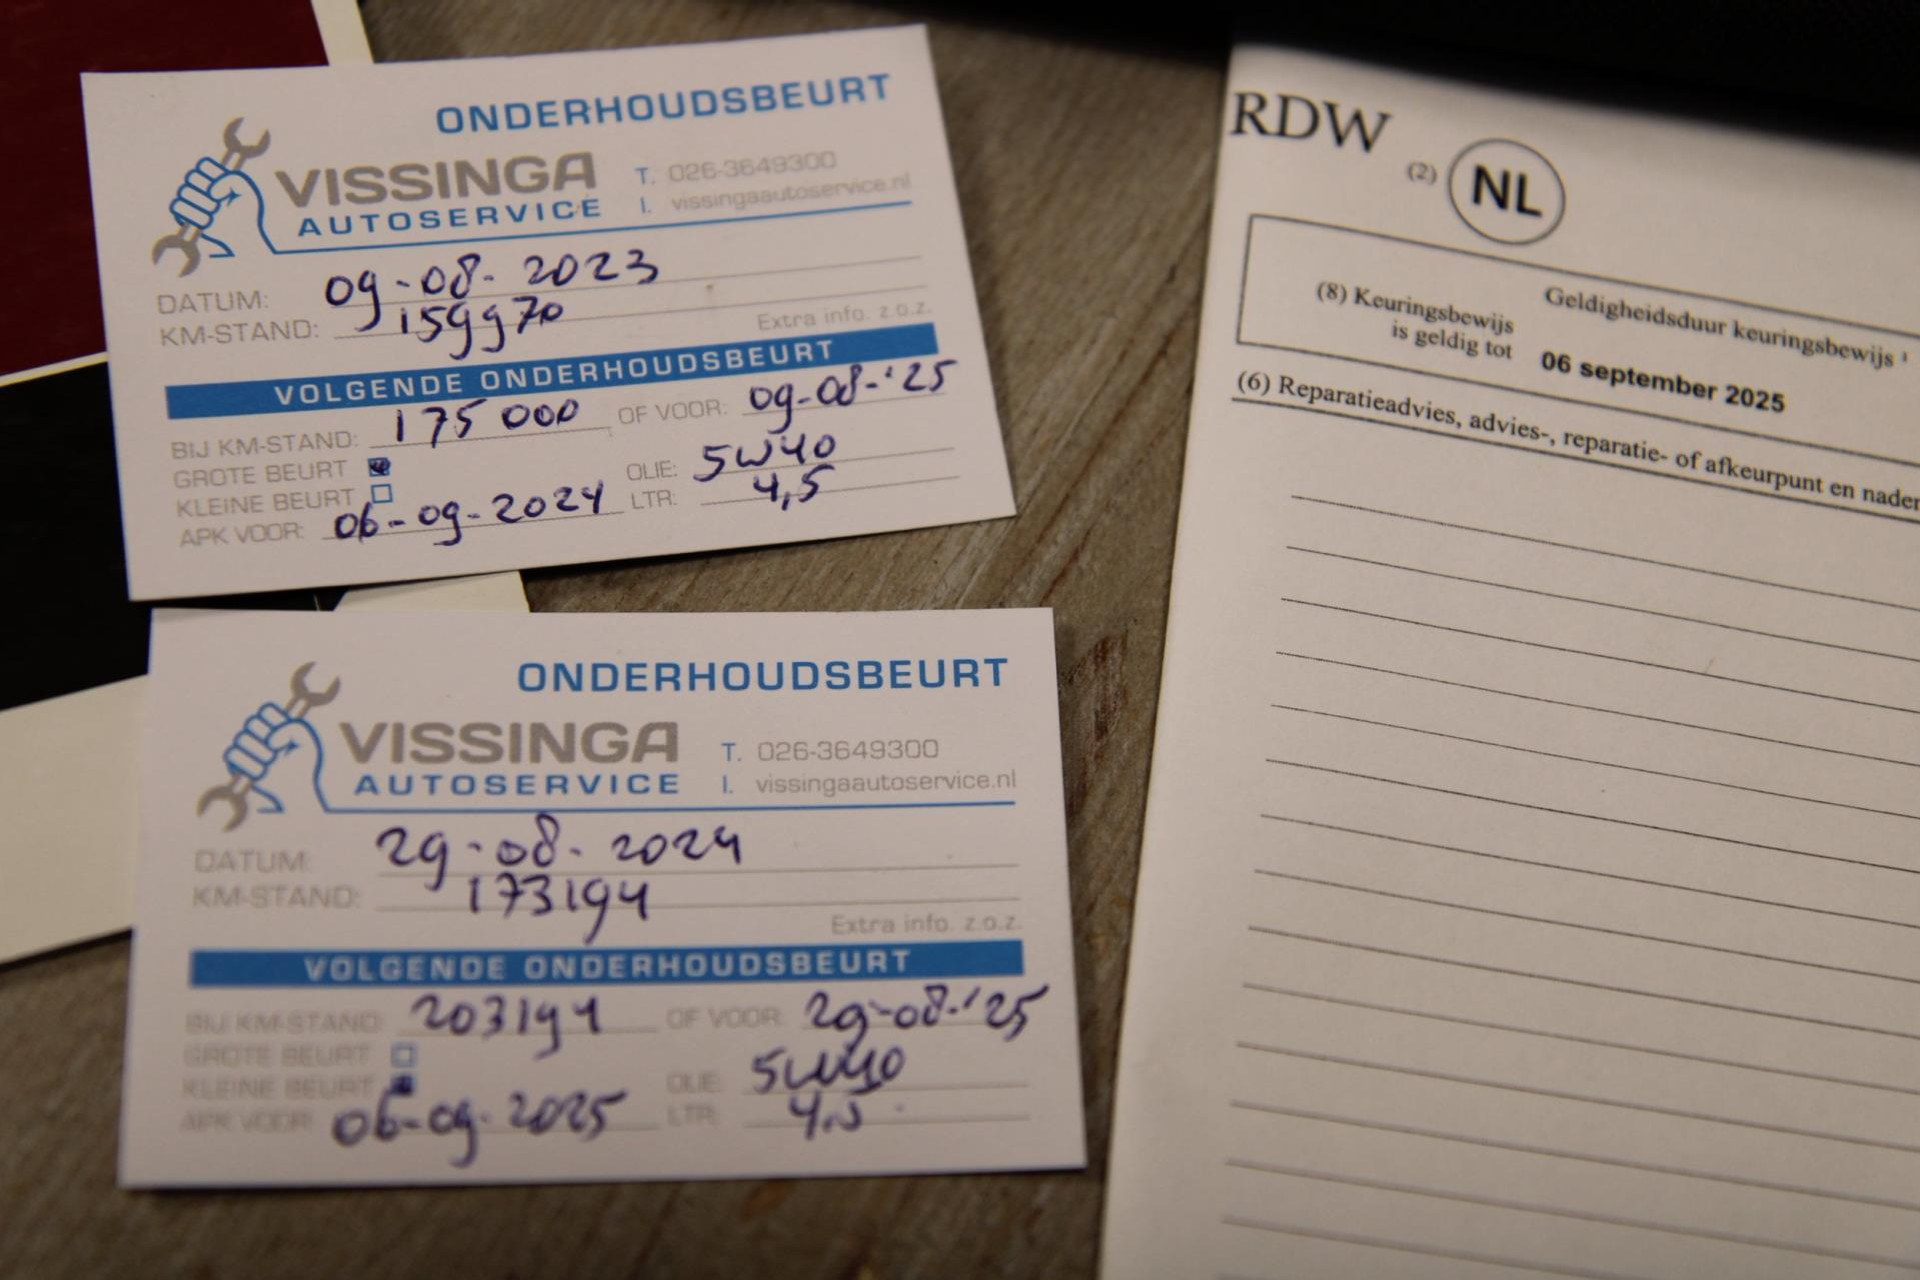 ONDERHOUDSBEURT
VISSINGA
AUTOSERVICE
T. 026-3649300
I. vissingaautoservice.nl
DATUM: 09-08-2023
KM-STAND: 159970
Extra info. z.o.z.
VOLGENDE ONDERHOUDSBEURT
BIJ KM-STAND: 175 000 OF VOOR: 09-08-'25
GROTE BEURT OLIE: 5W40
KLEINE BEURT LTR: 4,5
APK VOOR: 06-09-2024
ONDERHOUDSBEURT
VISSINGA
AUTOSERVICE
T. 026-3649300
I. vissingaautoservice.nl
DATUM: 29-08-2024
KM-STAND: 173194
Extra info. z.o.z.
VOLGENDE ONDERHOUDSBEURT
BIJ KM-STAND: 203194 OF VOOR: 29-08-'25
GROTE BEURT
KLEINE BEURT OLIE: 5W40
APK VOOR: 06-09-2025 LTR: 4,5
RDW (2) NL
Geldigheidsduur keuringsbewijs ¹
(8) Keuringsbewijs
is geldig tot 06 september 2025
(6) Reparatieadvies, advies-, reparatie- of afkeurpunt en nader